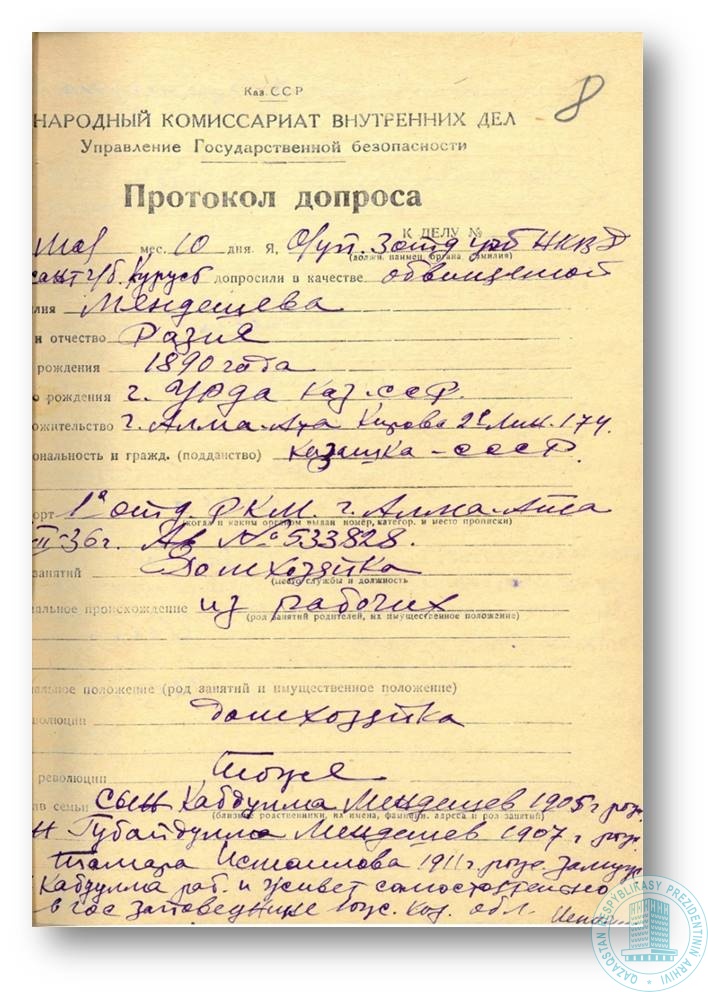 Каз. ССР
8
НАРОДНЫЙ КОМИССАРИАТ ВНУТРЕННИХ ДЕЛ
Управление Государственной безопасности
Протокол допроса
К ДЕЛУ №
мая мес. 10 дня. Я, О/уп. 3 отд угб НКВД
(должн. наимен. органа, фамилия)
сант г/б. допросили в качестве обвиняемой
илия Мендешева
и отчество Разия
рождения 1890 года
о рождения г. Урда Каз.ССР.
ожительство г. Алма-Ата Кирова 2е Лин. 174.
ональность и гражд. (подданство) казашка-СССР.
орт 1е отд. РКМ. г. Алма-Ата
(когда и каким органом выдан номер, категор. и место прописки)
II-36г. № 533828.
занятий Домхозяйка
(место службы и должность
иальное происхождение из рабочих
(род занятий родителей, их имущественное положение)
иальное положение (род занятий и имущественное положение)
еволюции домхозяйка
революции тоже
ав семьи сын Хабдулла Мендешев 1905 г рожд.
(близкие родственники, их имена, фамилии, адреса и род занятий)
н Губайдулла Мендешев 1907 г рожд.
Тамара Исмаилова 1911 г. рожд. замуж.
Хабдулла раб. и живет самостоятельно
в гос заповеднике Юж. Каз. обл.
QAZAQSTAN RESPÝBLIKASY PREZIDENTINIŃ ARHIVI